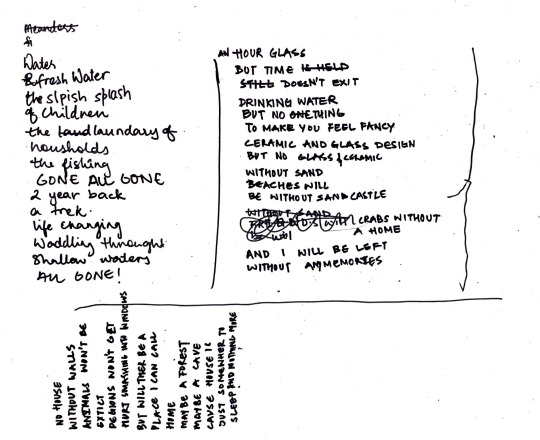 Meanders
&
Water
& fresh Water
the slpish splash
of Children
the landlaundary of
housholds
the fishing
GONE ALL GONE
2 year back
a trek.
life changing
Waddling throught
Shallow waters
ALL GONE!
AN HOUR GLASS
BUT TIME IS HELD
STILL DOESN'T EXIT
DRINKING WATER
BUT NO ONETHING
TO MAKE YOU FEEL FANCY
CERAMIC AND GLASS DESIGN
BUT NO GLASS & CERAMIC
WITHOUT SAND
BEACHES WILL
BE WITHOUT SANDCASTLE
WITHOUT SAND
CRABS WITHOUT
A HOME
AND I WILL BE LEFT
WITHOUT ANYMEMORIES
NO HOUSE
WITHOUT WALLS
ANIMALS WON'T BE
EXTICT
PEGIONS WON'T GET
HURT SMACHING INTO WINDOWS
BUT WILL THER BE A
PLACE I CAN CALL
HOME
MAYBE A FOREST
MAYBE A CAVE
CAUSE HOUSE IS
JUST SOMEWHER TO
SLEEP AND NOTHING MORE